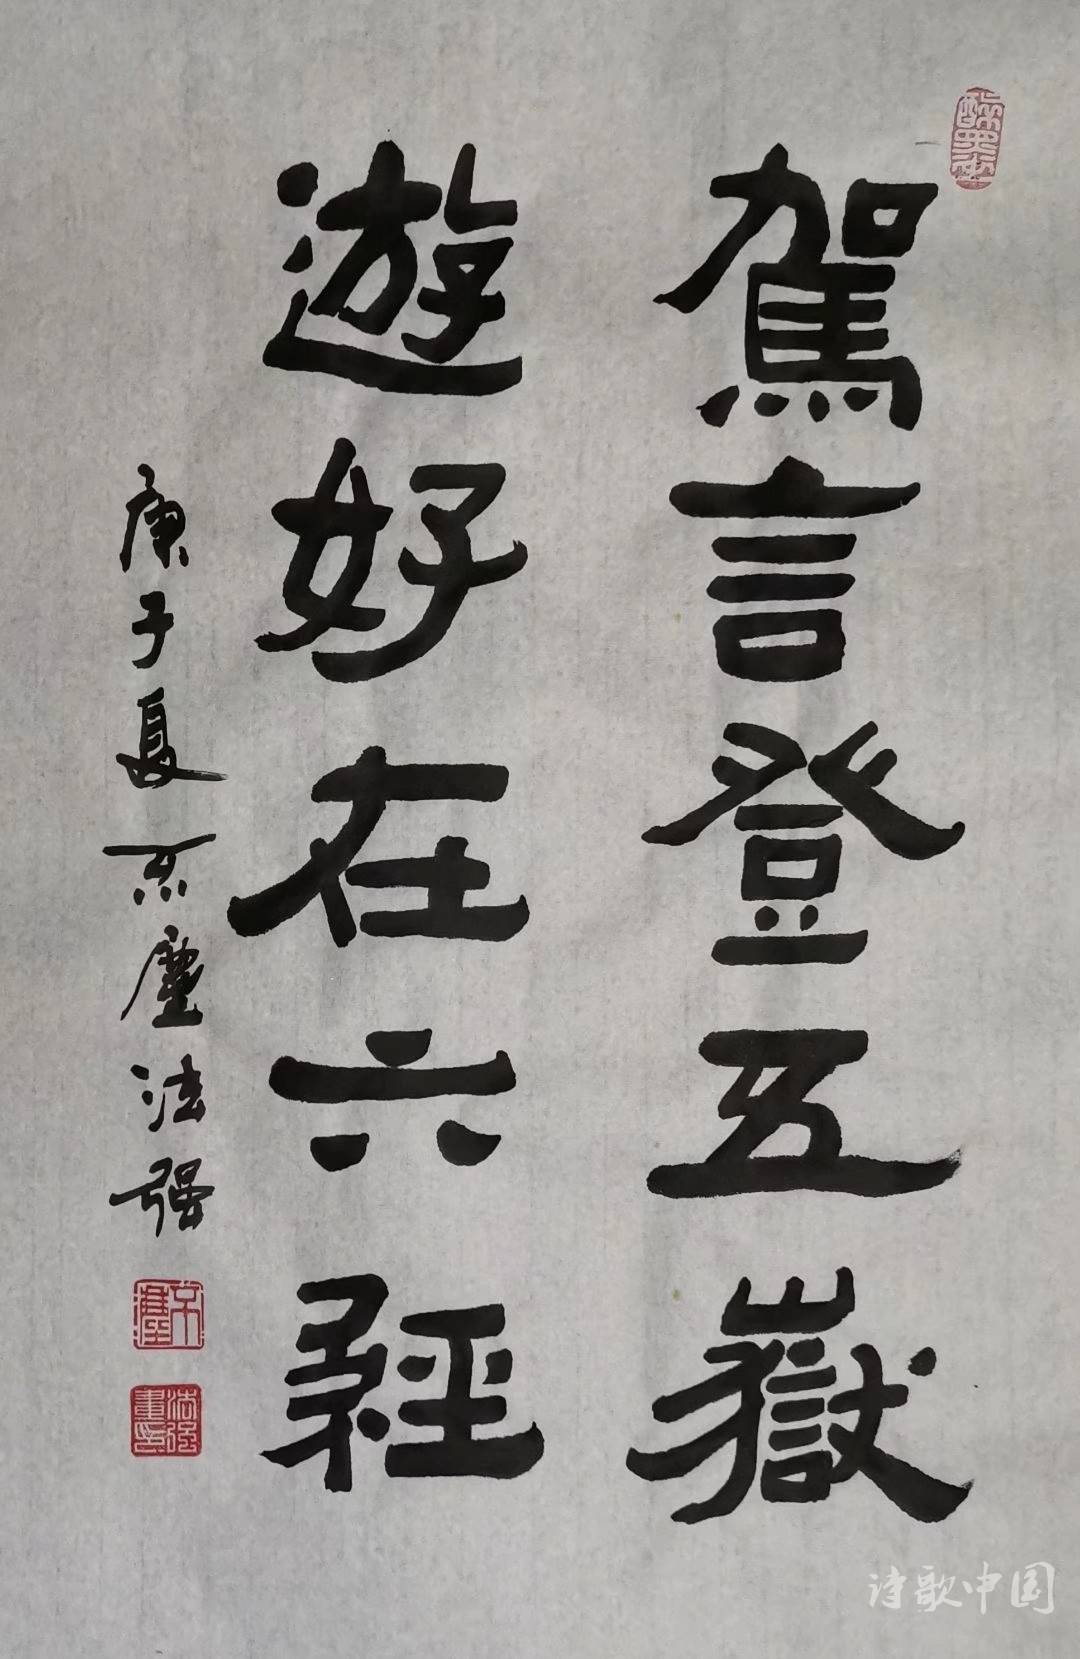 駕言登五嶽
遊好在六經
庚子夏法强
法强書印
诗歌中国